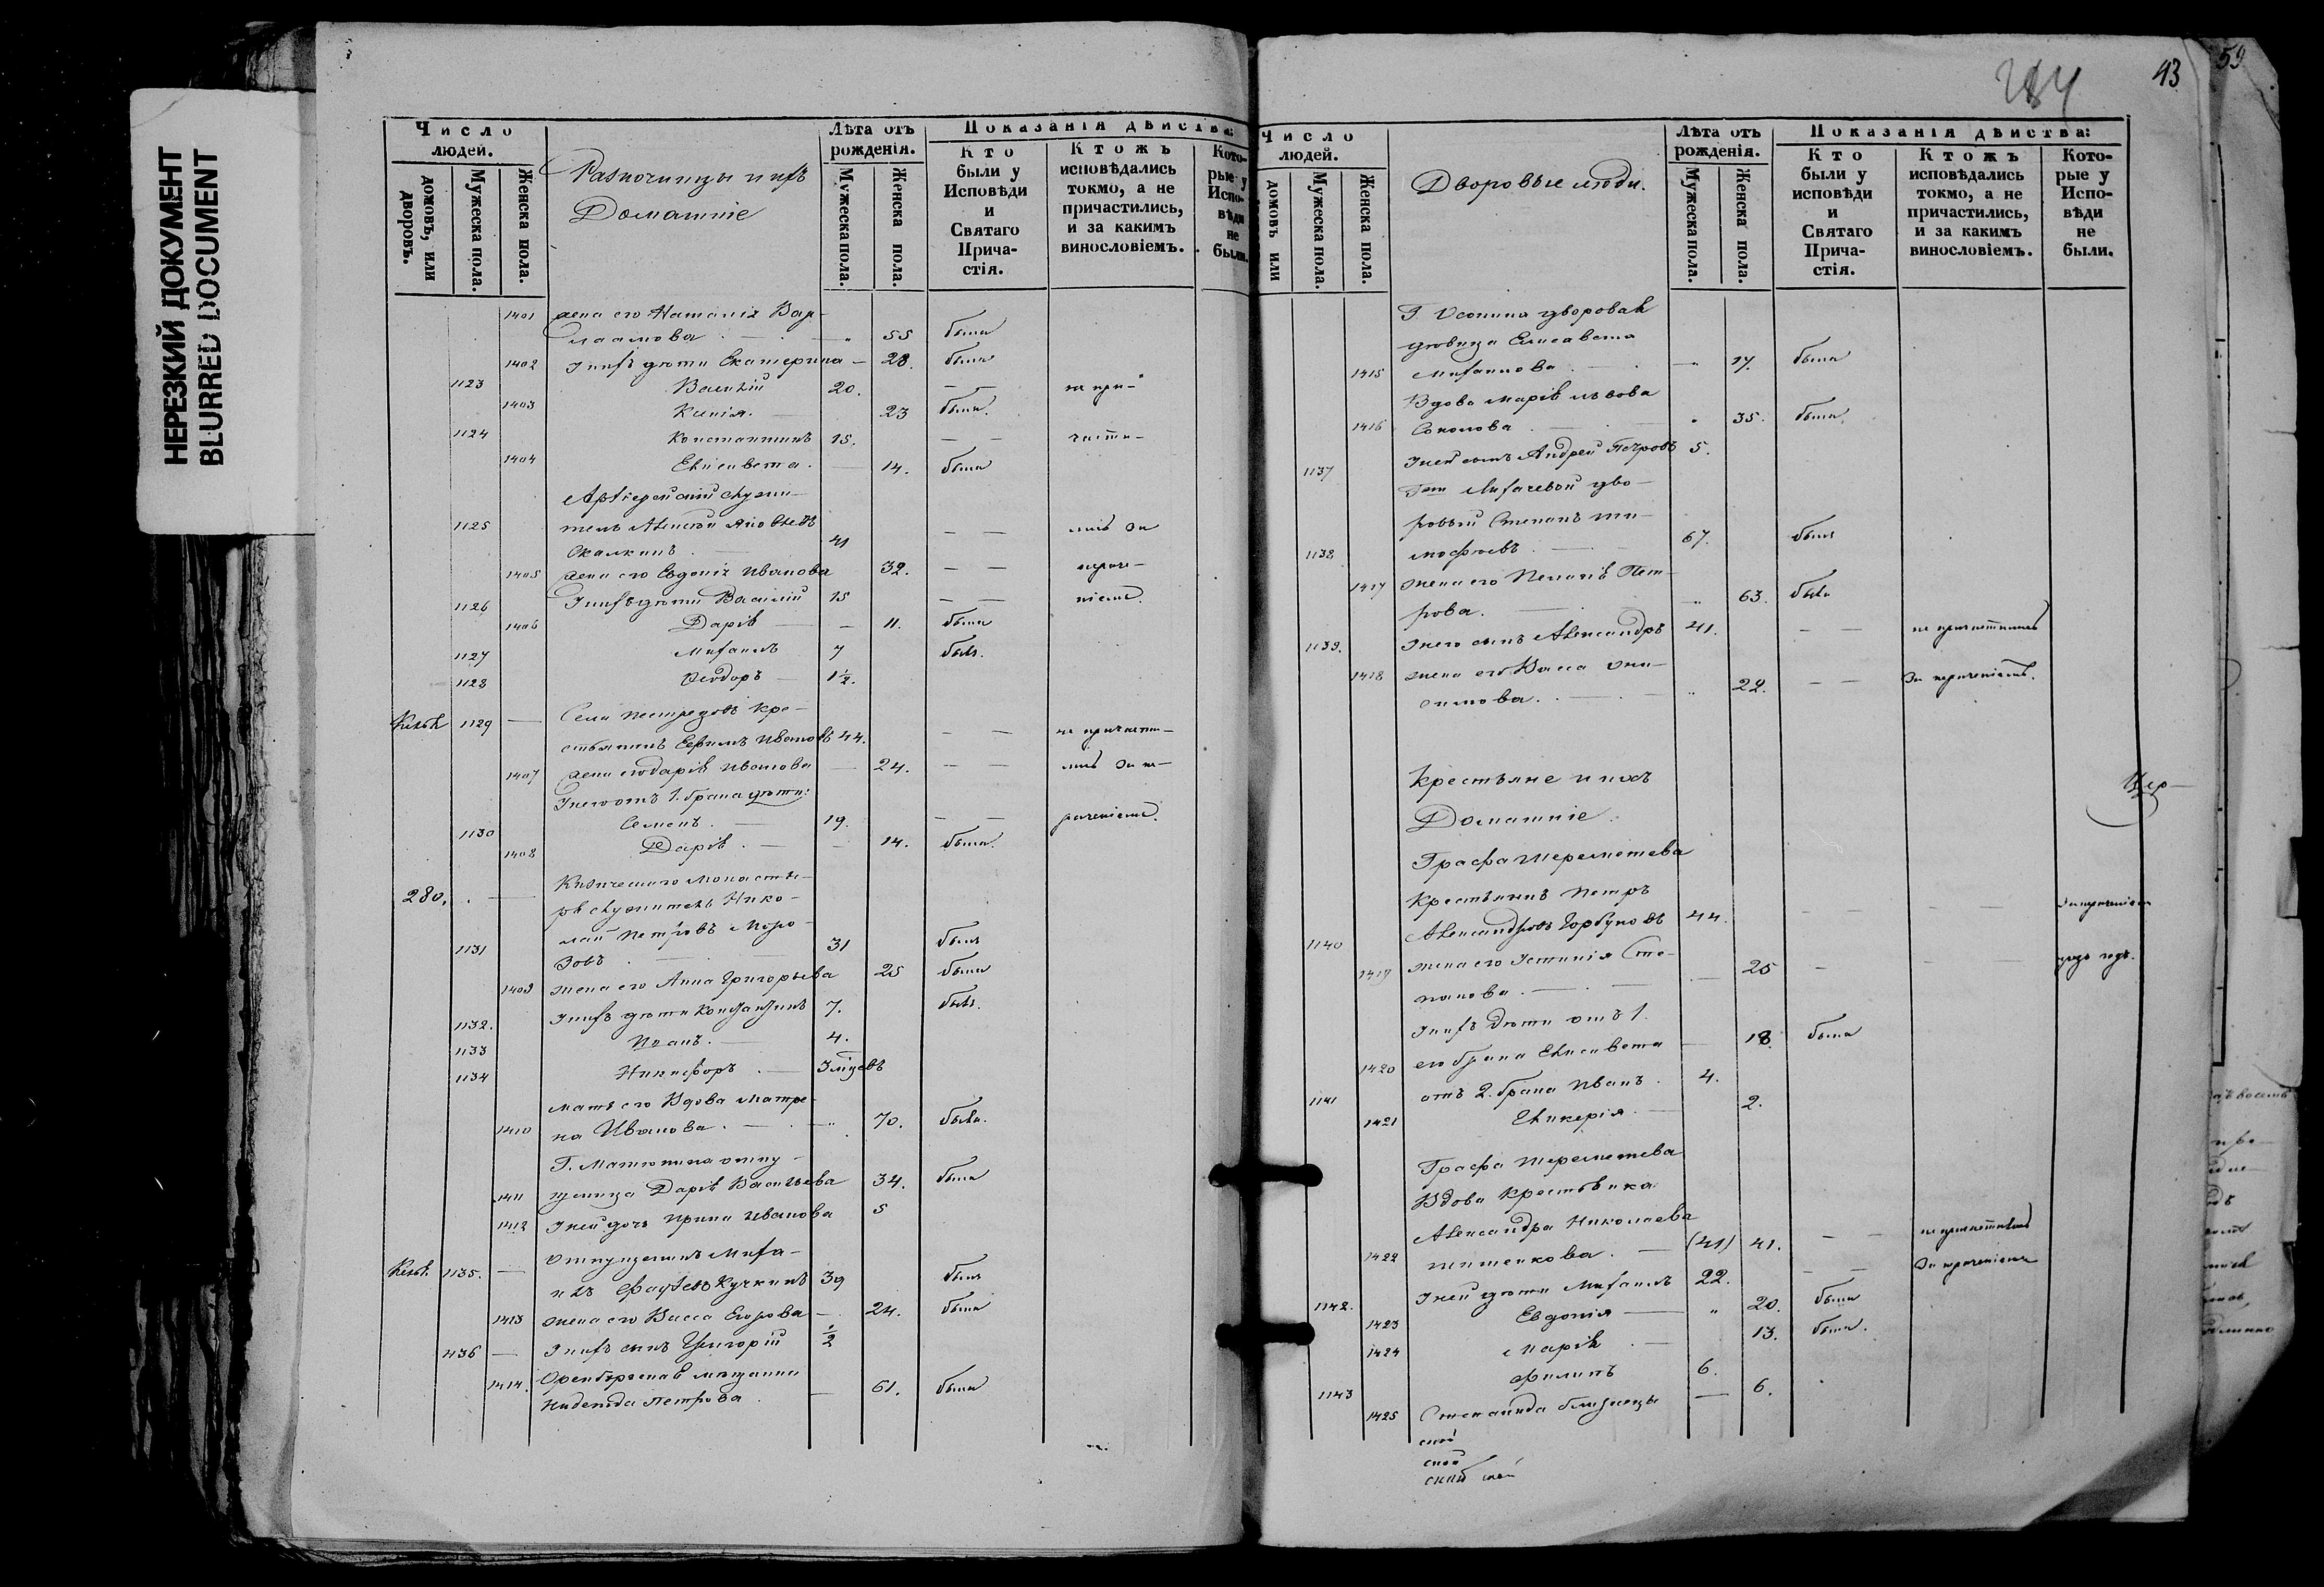 НЕРЕЗКИЙ ДОКУМЕНТ
BLURRED DOCUMENT
Число людей.
домовъ, или дворовъ.
Мужеска пола.
Женска пола.
Разночинцы и ихъ
Домашніе
Лѣта отъ рожденія.
Мужеска пола.
Женска пола.
Показанія двиства:
Кто были у Исповѣди и Святаго Прича-стія.
Ктожъ исповѣдались токмо, а не причастились, и за какимъ винословіемъ.
Кото-рые у Испо-вѣди не были.
1401 жена его Наталія Вар-
лаамова 55 была
1402 У нихъ дѣти Екатерина 28. была
1123 Василій 20. — — не при-
1403 23 была.
1124 Константинъ 15. — — части-
1404 Елисавета. 14. была
Архіерейскій служи-
1125 тель Алексѣй Яковлевъ
Скалкинъ 41 — — лись за
1405 жена его Евдокія Иванова 32. — — нераче-
1126 У нихъ дѣти Василій 15 — — ніемъ.
1406 Дарія — 11. была
1127 Михаилъ 7 былъ.
1128 Ѳеодоръ 1½.
1129 Села Пестрецовъ кре-
стьянинъ Ефимъ Ивановъ 44. — — не причасти-
1407 жена его Дарія Иванова — 24. — — лись за не-
У него отъ 1. брака дѣти:
1130 Семенъ 19. — — раченіемъ.
1408 Дарія 14. была.
280. Кизическаго монасты-
ря служитель Нико-
лай Петровъ Моро-
1131 зовъ 31 былъ
1409 жена его Анна Григорьева 25 была
1132. У нихъ дѣти Константинъ 7. былъ.
1133 Иоанъ. 4.
1134 Никифоръ 3 мѣсяцевъ
мать его Вдова Матре-
1410 на Иванова 70. была.
Г. Матюнина отпу-
1411 щеница Дарія Васильева 34. была
1412 У ней дочь Ирина Иванова 5
Отпущенникъ Миха-
1135. илъ Кучкинъ 39 былъ
1413 жена его Васса Егорова — 24. была
1136 — У нихъ сынъ Григорій ½
1414. Оренбургская мѣщанка
Надежда Петрова 61. была
284
43
59
Число людей.
домовъ или
Мужеска пола.
Женска пола.
Дворовые люди.
Лѣта отъ рожденія.
Мужеска пола.
Женска пола.
Показанія двиства:
Кто были у исповѣди и Святаго Прича-стія.
Ктожъ исповѣдались токмо, а не причастились, и за какимъ винословіемъ.
Кото-рые у Испо-вѣди не были.
Г. Осокина дворовая
дѣвица Елисавета
1415 Михаилова 17. была
Вдова Марія Львова
1416 Соколова 35. была
1137 У ней сынъ Андрей Петровъ 5.
Гжи Михачевой дво-
ровый Степанъ Ти-
1138 мофѣевъ 67. былъ
1417 жена его Пелагія Пет-
рова. 63. была
1139. У него сынъ Александръ 41. — — не причастились
1418 жена его Васса Они-
симова 22. — — за нераченіемъ.
Крестьяне и ихъ
Домашніе.
Графа Шереметева
Крестьянинъ Петръ
1140 Александровъ Горбуновъ 44. за нераченіемъ
1419 жена его Устинія Сте-
панова 25
У нихъ дѣти отъ 1.
1420 его брака Елисавета 18. была
1141 отъ 2. брака Иванъ 4.
1421 Гликерія 2.
Графа Шереметева
Вдова крестьянка
Александра Николаева
1422 (41) 41. — — не причастились
1142. У ней дѣти Михаилъ 22. — — за нераченіемъ
1423 Евдокія — 20. была
1424 Марія 13. была.
1143 Филипъ 6.
1425 Степанида близнецы — 6.
Цер-